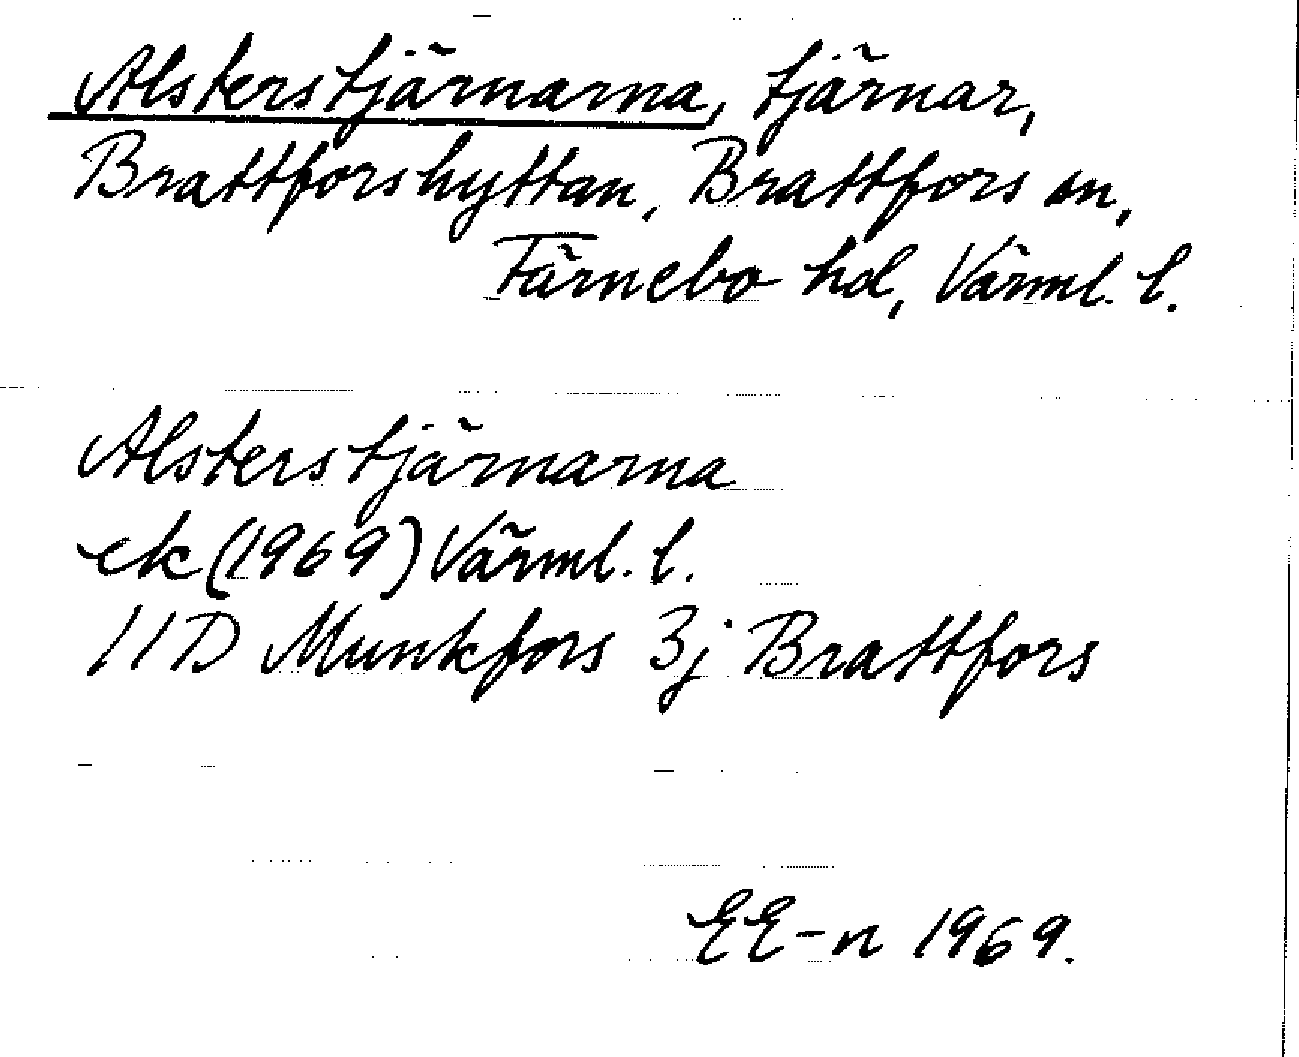 Alsterstjärnarna, tjärnar,
Brattforshyttan, Brattfors sn,
Färnebo hd, Värml. l.
Alsterstjärnarna
ek (1969) Värml. l.
11D Munkfors 3j Brattfors
EE-n 1969.